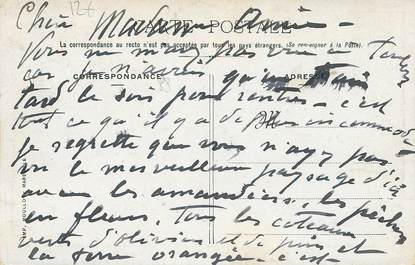 Chère Madame Amie
CARTE POSTALE
Vous ne m'avez pas vue à
La correspondance au recto n'est pas acceptée par tous les pays étrangers. (Se renseigner à la Poste).
car je n'avais qu'un train
CORRESPONDANCE
tard le soir pour rentrer – c'est
tout ce qu'il y a de plus incommode
je regrette que vous n'ayez pas
vu le merveilleux paysage d'ici
avec les amandiers, les pêchers
en fleurs, tous les coteaux
verts d'oliviers et de pins et
la terre orangée – c'est